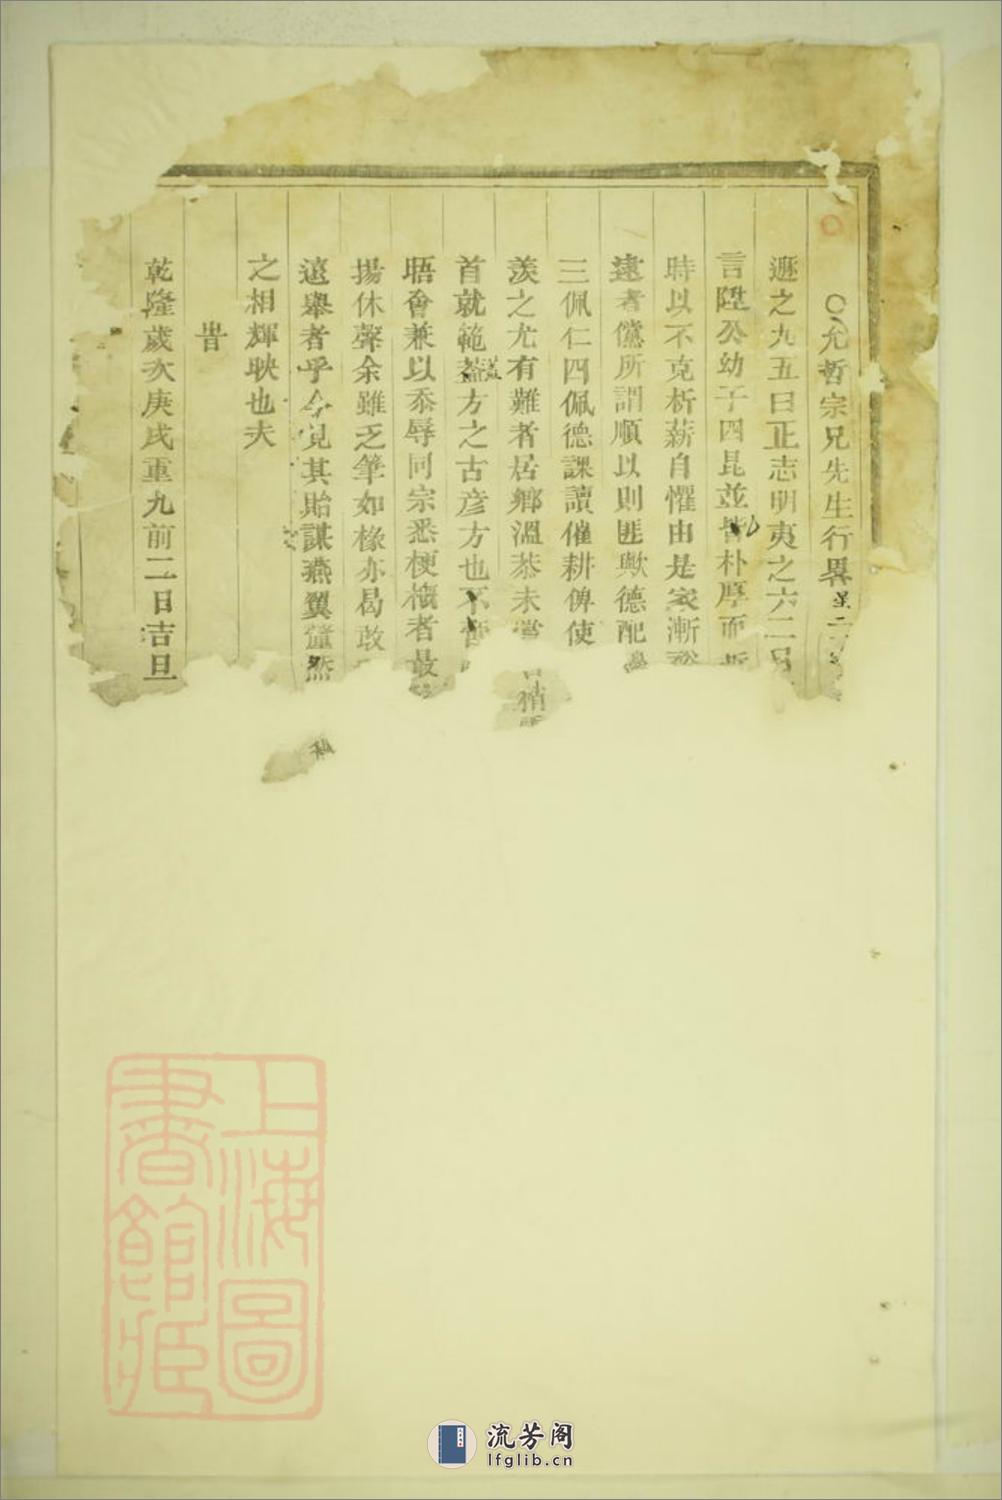 ○允哲宗兄先生行畧
遯之九五曰正志明夷之六二曰
言陞公幼子四昆並皆朴厚而哲
時以不克析薪自懼由是家漸裕
遠者儻所謂順以則匪歟德配
三佩仁四佩德課讀催耕俾使
羨之尤有難者居鄉溫恭未嘗 循
首就範蓋方之古彥方也不啻
晤會兼以忝辱同宗悉梗概者最
揚休聲余雖乏筆如椽亦曷敢
遠舉者乎今覓其貽謀燕翼蘁然
之相輝映也夫
旹
乾隆歲次庚戌重九前二日吉旦
上海圖
書館藏
流芳阁
lfglib.cn